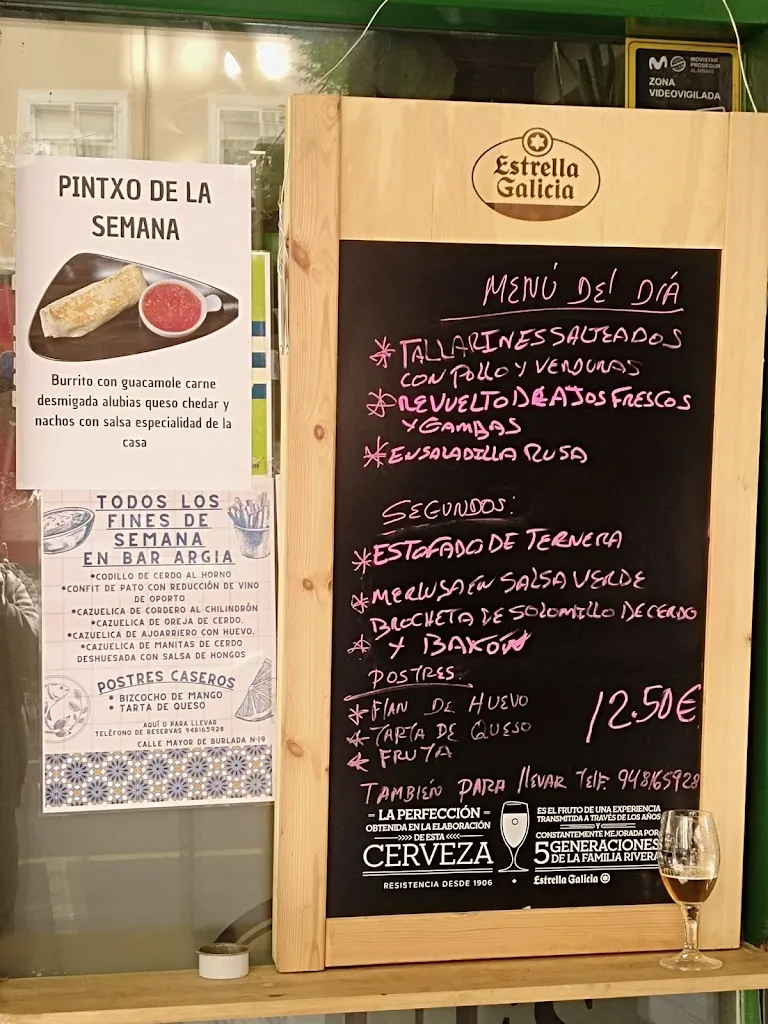 MOVISTAR
PROSEGUR
ALARMAS
ZONA
VIDEOVIGILADA
PINTXO DE LA
SEMANA
Burrito con guacamole carne
desmigada alubias queso chedar y
nachos con salsa especialidad de la
casa
TODOS LOS
FINES DE
SEMANA
EN BAR ARGIA
•CODILLO DE CERDO AL HORNO
•CONFIT DE PATO CON REDUCCIÓN DE VINO
DE OPORTO
•CAZUELICA DE CORDERO AL CHILINDRÓN
•CAZUELICA DE OREJA DE CERDO.
•CAZUELICA DE AJOARRIERO CON HUEVO.
•CAZUELICA DE MANITAS DE CERDO
DESHUESADA CON SALSA DE HONGOS
POSTRES CASEROS
• BIZCOCHO DE MANGO
• TARTA DE QUESO
AQUÍ O PARA LLEVAR
TELÉFONO DE RESERVAS 948165928
CALLE MAYOR DE BURLADA N-19
Estrella
Galicia
MENÚ DEl DÍA
* TALLARINES SALTEADOS
CON POLLO Y VERDURAS
* REVUELTO DE AJOS FRESCOS
Y GAMBAS
* ENSALADILLA RUSA
SEGUNDOS:
* ESTOFADO DE TERNERA
* MERLUSA EN SALSA VERDE
BROCHETA DE SOLOMILLO DE CERDO
* Y BAKÓN
POSTRES.
* FLAN DE HUEVO
* TARTA DE QUESO
* FRUTA
12.50€
TAMBIÉN PARA llEVAR TELF. 948165928
- LA PERFECCIÓN -
OBTENIDA EN LA ELABORACIÓN
DE ESTA
CERVEZA
RESISTENCIA DESDE 1906
ES EL FRUTO DE UNA EXPERIENCIA
TRANSMITIDA A TRAVÉS DE LOS AÑOS
Y
CONSTANTEMENTE MEJORADA POR
5 GENERACIONES
DE LA FAMILIA RIVERA
Estrella Galicia